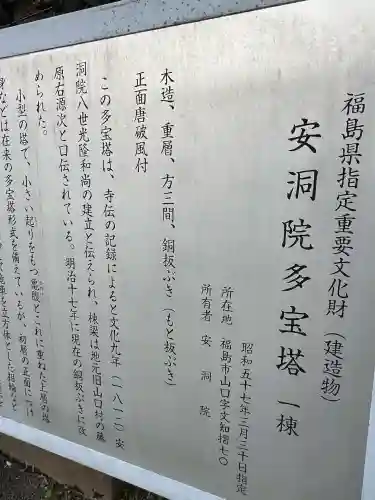 福島県指定重要文化財(建造物)
安洞院多宝塔 一棟
昭和五十七年三月三十日指定
所在地 福島市山口字文知摺七〇
所有者 安洞院
木造、重層、方三間、銅板ぶき(もと板ぶき)
正面唐破風付
この多宝塔は、寺伝の記録によると文化九年(一八一二)安
洞院八世光隆和尚の建立と伝えられ、棟梁は地元旧山口村の藤
原右源次と口伝されている。明治十七年に現在の銅板ぶきに改
められた。
小型の塔で、小さい起りをもつ
これに重ねた上層の塔
身などは在来の多宝塔形式を備えているが、初層の正面につけ